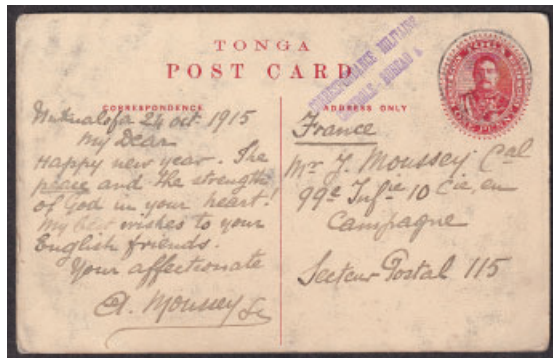 TONGA
POST CARD
CORRESPONDANCE MILITAIRE
CONTROLE - BUREAU
CORRESPONDENCE
ADDRESS ONLY
ONE PENNY
Nukualofa 24 oct. 1915
My Dear
Happy new year. The
peace and the strength
of God in your heart!
My best wishes to your
English friends.
Your affectionate
A. Moussey
France
Mr J. Moussey Cal
99e Infie 10 Cie, en
Campagne
Secteur Postal 115